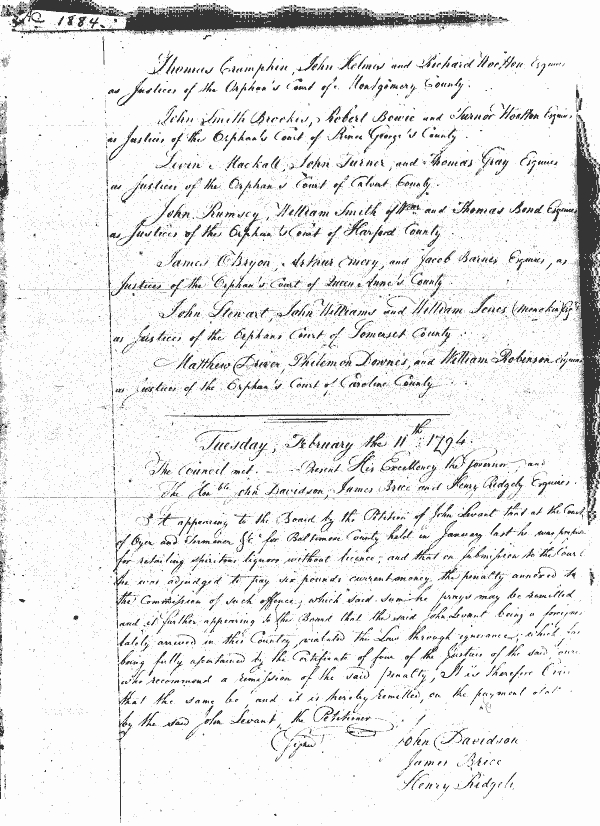 No. 1884.
Thomas Cramphin, John Holmes and Richard Wootton Esquires
as Justices of the Orphan's Court of Montgomery County.
John Smith Brookes, Robert Bowie and Turnor Wootton Esquires
as Justices of the Orphan's Court of Prince George's County
Levin Mackall, John Turner, and Thomas Gray Esquires
as Justices of the Orphan's Court of Calvert County.
John Rumsey, William Smith of Wm and Thomas Bond Esquires
as Justices of the Orphan's Court of Harford County
James O'Bryon, Arthur Emory, and Jacob Barnes Esquires, as
Justices of the Orphan's Court of Queen Anne's County
John Stewart, John Williams and William Jones (Monokin) Esqrs
as Justices of the Orphans Court of Somerset County
Matthew Driver, Philemon Downes, and William Robinson Esquires
as Justices of the Orphan's Court of Caroline County
Tuesday, February the 11th 1794.
The Council met. Present His Excellency the Governor, and
The Honble John Davidson, James Brice and Henry Ridgely Esquires.
It appearing to the Board by the Petition of John Levant that at the Court
of Oyer and Terminer &c for Baltimore County held in January last he was
for retailing spirituous liquors without licence, and that on submission to the Court
he was adjudged to pay six pounds current money, the penalty annexed to
the Commission of such offence, which said sum he prays may be remitted
and it further appearing to the Board that the said John Levant being a foreigner
lately arrived in this Country, violated the Law through ignorance, which fact
being fully ascertained by the Certificate of four of the Justices of the said Court
who recommend a remission of the said penalty; It is therefore
that the same be and it is hereby remitted, on the payment of
by the said John Levant, the Petitioner
Signed
John Davidson
James Brice
Henry Ridgely